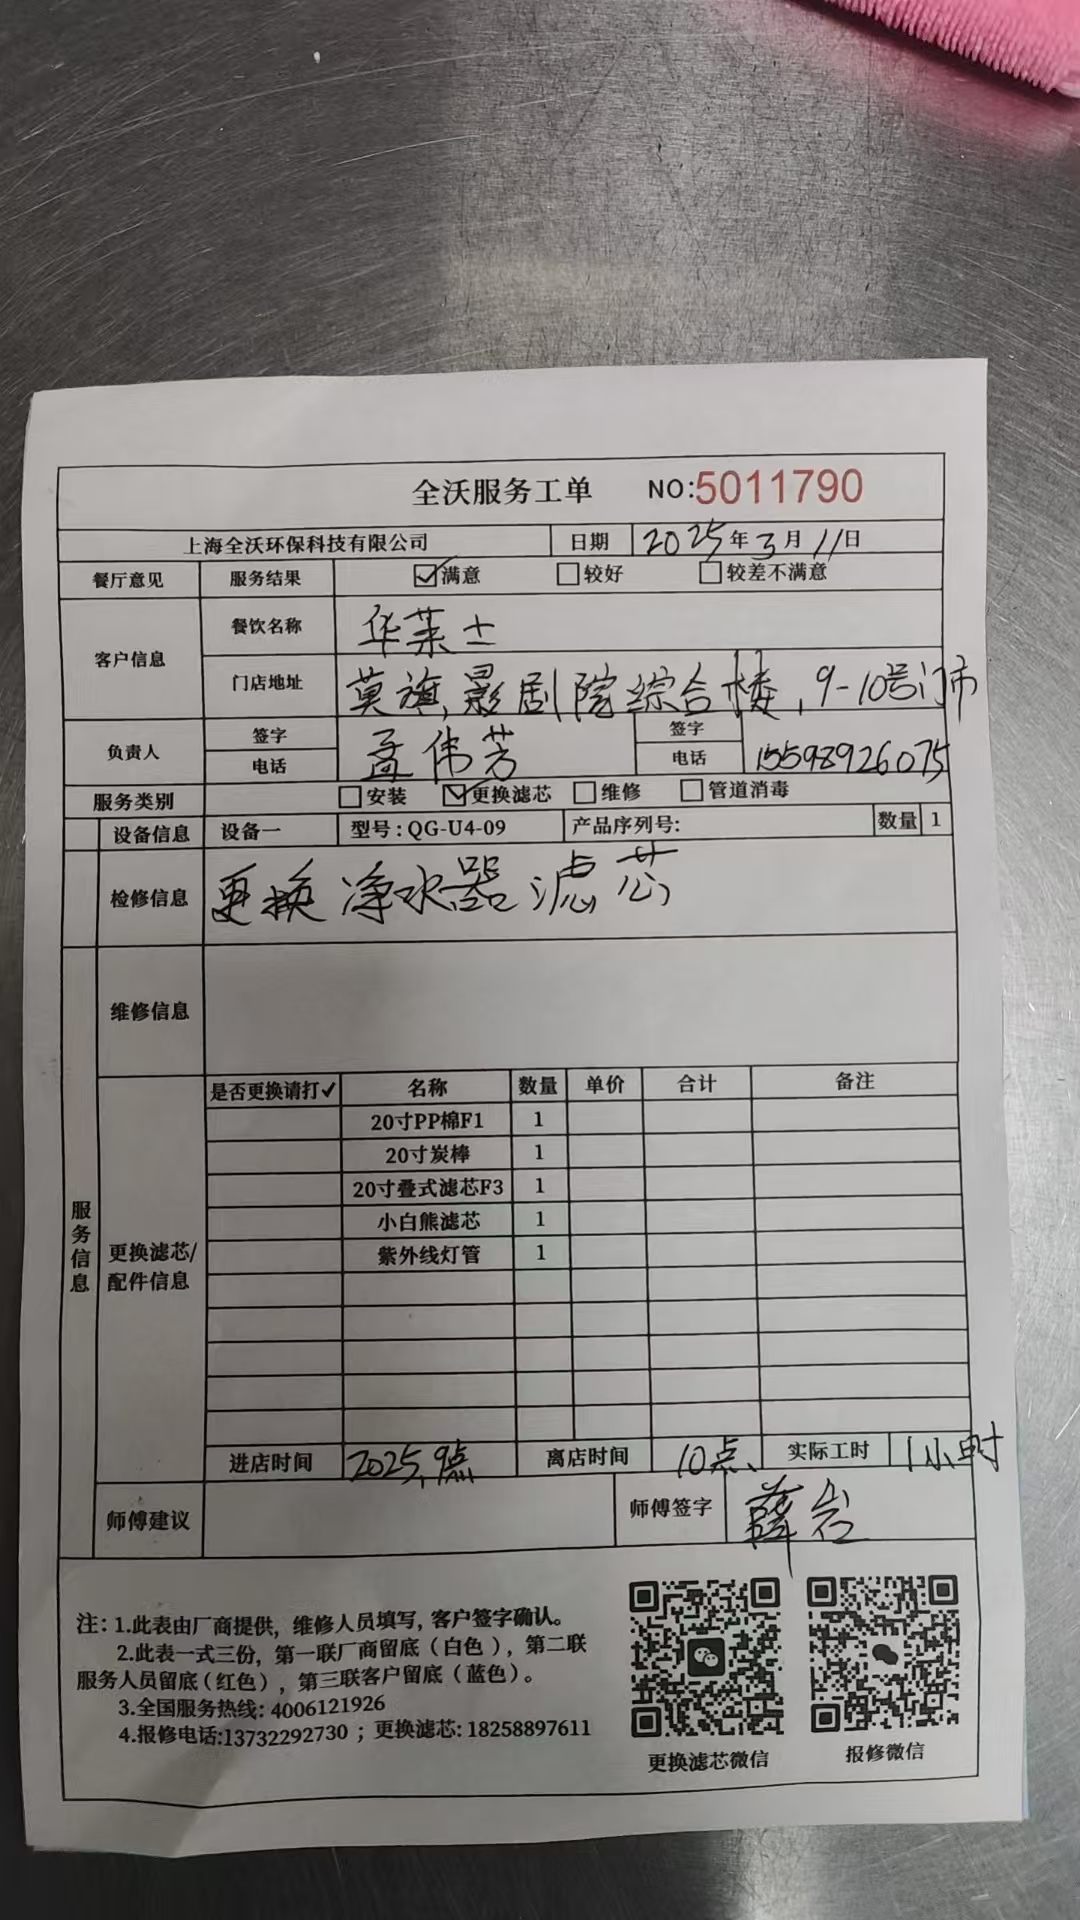 全沃服务工单 NO:5011790
上海全沃环保科技有限公司 日期 2025年3月11日
餐厅意见 服务结果 ☑满意 □较好 □较差不满意
客户信息 餐饮名称 华莱士
门店地址 莫旗,影剧院综合楼,9-10号门市
负责人 签字 孟伟芳 签字
电话 电话 15598926075
服务类别 □安装 ☑更换滤芯 □维修 □管道消毒
设备信息 设备一 型号:QG-U4-09 产品序列号: 数量 1
检修信息 更换净水器滤芯
维修信息
服务信息
更换滤芯/配件信息
是否更换请打✓ 名称 数量 单价 合计 备注
20寸PP棉F1 1
20寸炭棒 1
20寸叠式滤芯F3 1
小白熊滤芯 1
紫外线灯管 1
进店时间 2025,9点 离店时间 10点、 实际工时 1小时
师傅建议 师傅签字 薛岩
注:1.此表由厂商提供,维修人员填写,客户签字确认。
2.此表一式三份,第一联厂商留底(白色),第二联
服务人员留底(红色),第三联客户留底(蓝色)。
3.全国服务热线:4006121926
4.报修电话:13732292730;更换滤芯:18258897611
更换滤芯微信 报修微信